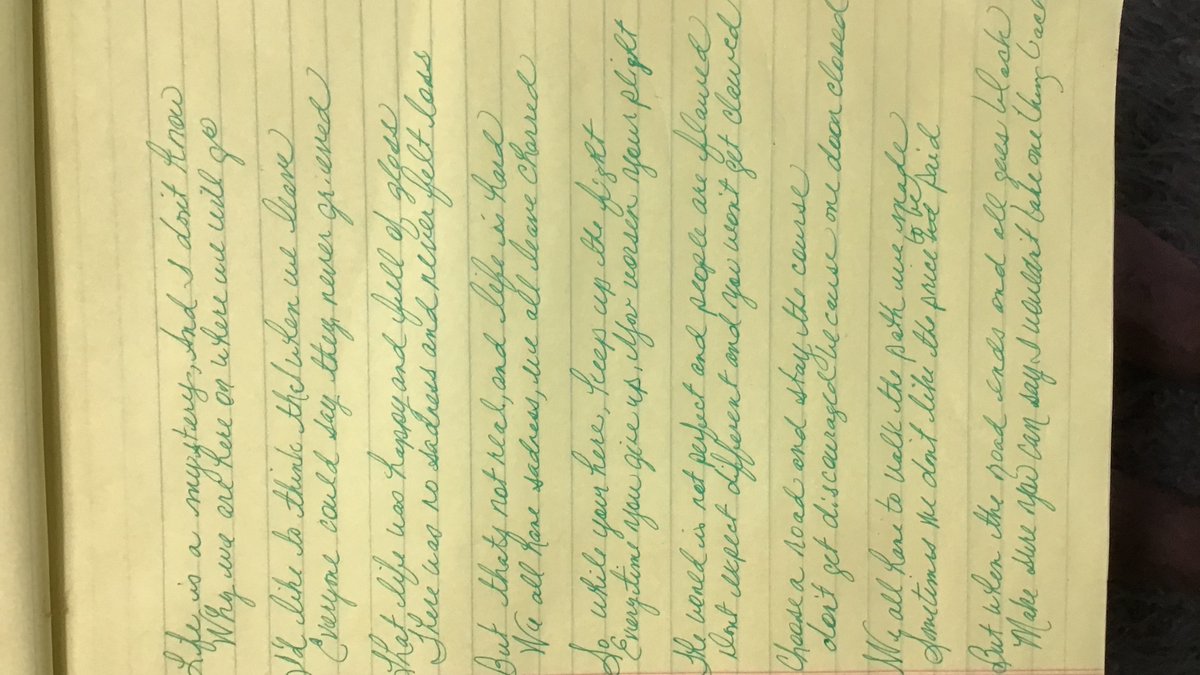 Life is a mystery, And I don't know
Why we are here or where we will go
I'd like to think that when we leave
Everyone could say they never grieved
That life was happy and full of
There was no sadness and never felt loss
But thats not real, and life is hard
We all have sadness, we all leave charred
So while your here, keep up the fight
Everytime you give up, you worsen your plight
The world is not perfect and people are flawed
Dont expect different and you won't get clawed
Choose a road and stay the course
don't get discouraged because one door closed
We all have to walk the path we made
Sometimes we dont like the price to be paid
But when the road ends and all goes black
Make sure you can say, I wouldn't take one thing back